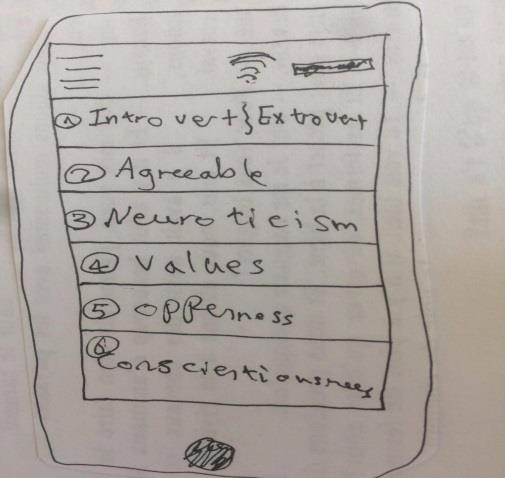 ① Introvert}Extrovert
② Agreeable
③ Neuroticism
④ Values
⑤ oppenness
⑥
Conscientiousnees